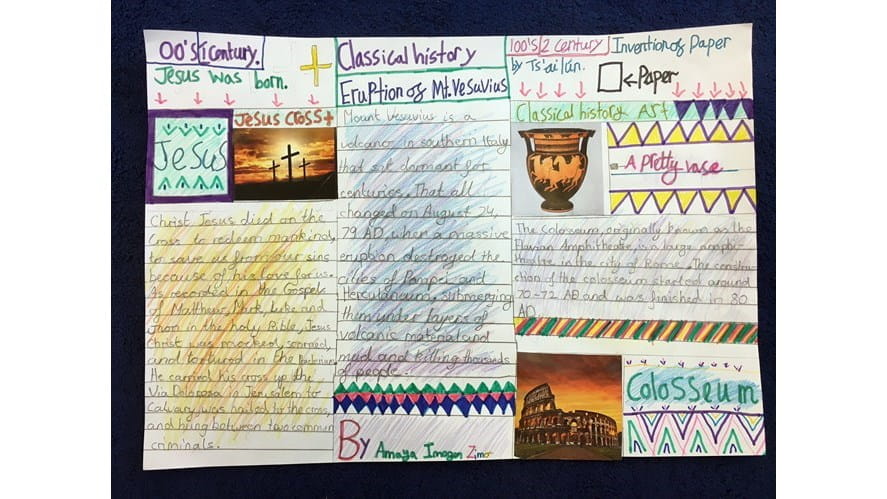 00's/1 Century.
Jesus was born.
Jesus
Jesus Cross
Christ Jesus died on the
Cross to redeem mankind,
to save us from our sins
because of his love for us.
As recorded in the Gospels
of Matthew, Mark, Luke and
Jhon in the holy Bible, Jesus
Christ was mocked, scorned,
and tortured in the
He carried his cross up the
Via Dolorosa in Jerusalem to
Calvary, was nailed to the cross,
and hung between two commun
criminals.
Classical history
Eruption of Mt. Vesuvius
Mount Vesuvius is a
volcano in southern Italy
that sit dormant for
centuries. That all
changed on August 24,
79 AD, when a massive
eruption destroyed the
cities of Pompei and
Herculaneum, submerging
them under layers of
volcanic material and
mud and killing thousands
of people.
By Amaya Imogen
100's/2 Century
Invention of Paper
by Ts'ai lun.
←Paper
Classical history Art
A pretty vase
The Colosseum, originally known as the
Flavian Amphitheatre, is a large amphi-
theatre in the city of Rome. The construc
tion of the colosseum started around
70-72 AD and was finished in 80
AD.
Colosseum